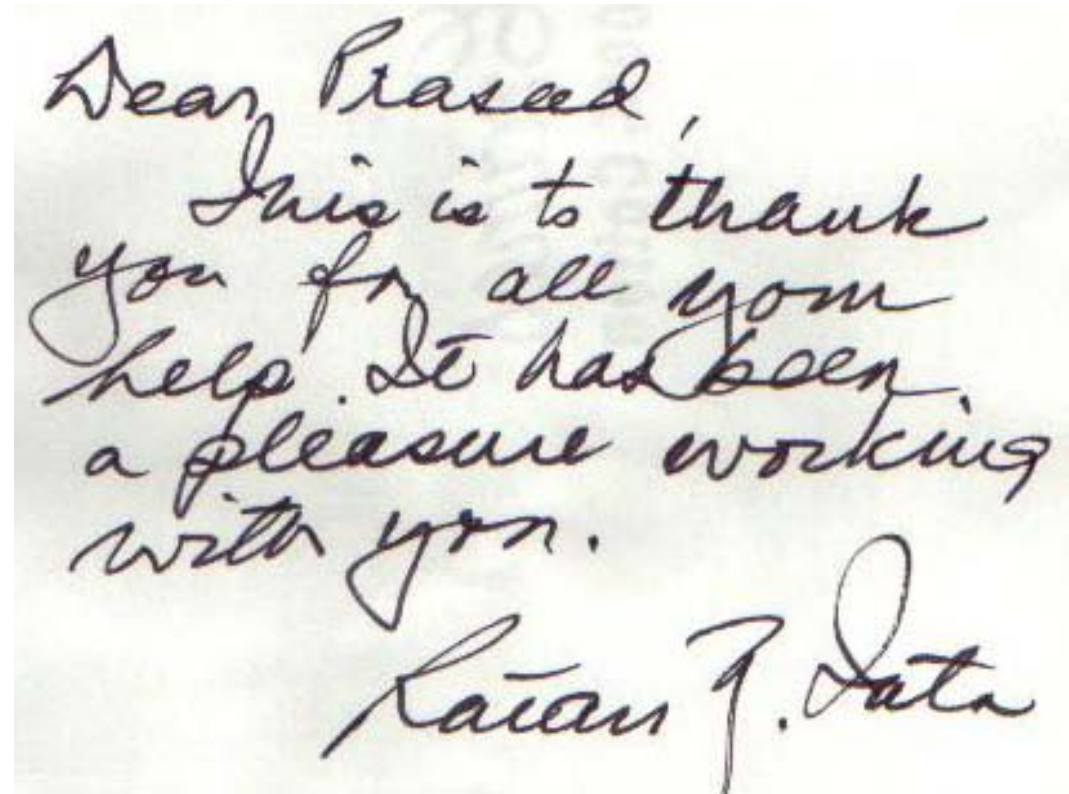 Dear Prasad,
This is to thank
you for all your
help. It has been
a pleasure working
with you.
Ratan N. Tata